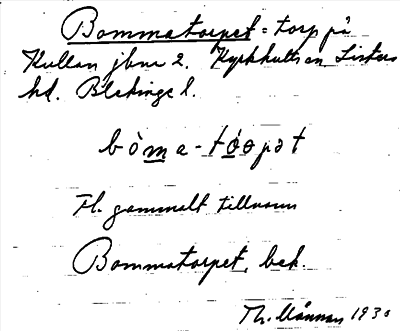 Bommatorpet = torp på
Kullan jbnr 2. Kyrkhults sn Listers
hd. Blekinge l.
bòma-tóopət
Fl. gammalt tillnamn
Bommatorpet, bek.
Th. Månsson 1930